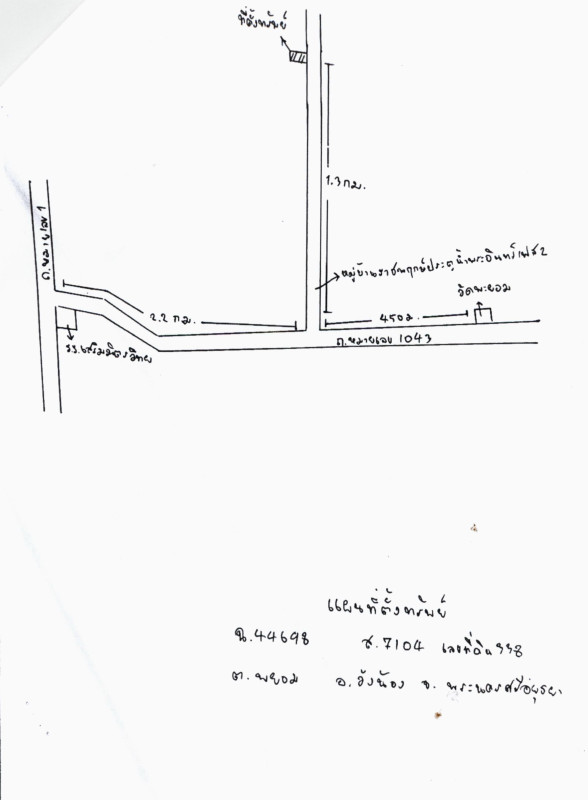 ที่ตั้งทรัพย์
1.3 กม.
ถ.หมายเลข 1
หมู่บ้านราชพฤกษ์ประตูน้ำพระอินทร์เฟส 2
วัดพะยอม
2.2 กม.
450 ม.
ถ.หมายเลข 1043
รร.เสริมมิตรวิทย
แผนที่ตั้งทรัพย์
ฉ.44698 ส.7104 เลขที่ดิน
ต. พยอม อ. วังน้อย จ. พระนครศรีอยุธยา